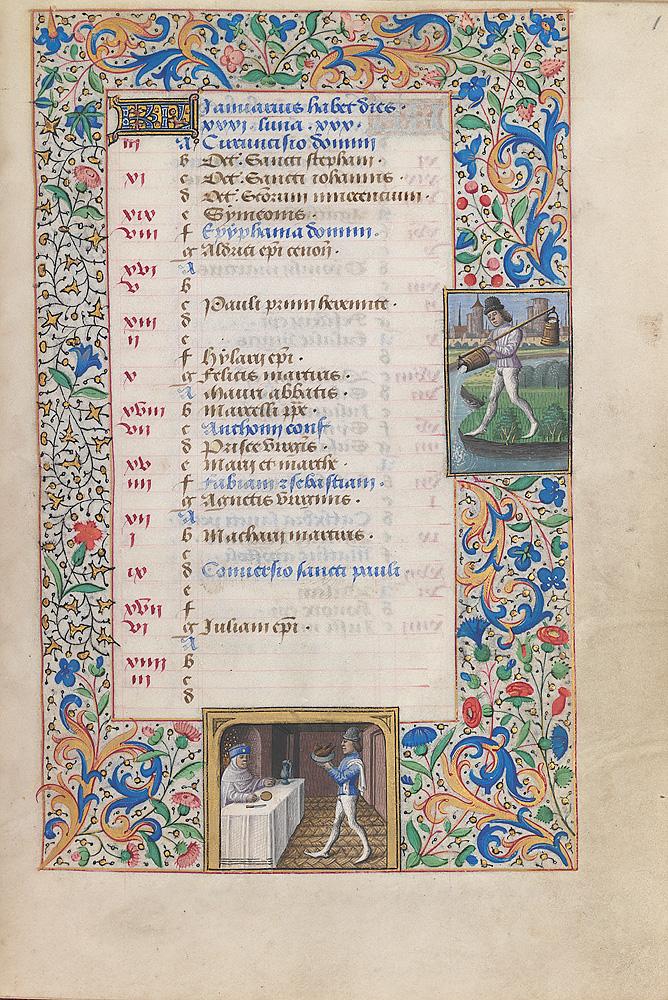 1
KL Januarius habet dies.
xxxi. luna. xxx.
iii A Circuncisio domini
b Oct. Sancti stephani
xi c Oct. Sancti iohannis.
d Oct. Scorum innocencium.
xix e Symeonis.
viii f Epyphania domini.
g Aldrici epi
xvi A
v b
c Pauli primi heremite.
xiii d
ii e
f Hylarii epi.
x g Felicis martiris.
A Mauri abbatis.
xviii b Marcelli ppe.
vii c Anthonii conf.
d Prisce virginis.
xv e Marii et marthe.
iiii f Fabiani z sebastiani.
g Agnetis virginis.
xii A
i b Macharii martiris.
c
ix d Conversio sancti pauli
e
xvii f
vi g Juliani epi.
A
xiiii b
iii c
d